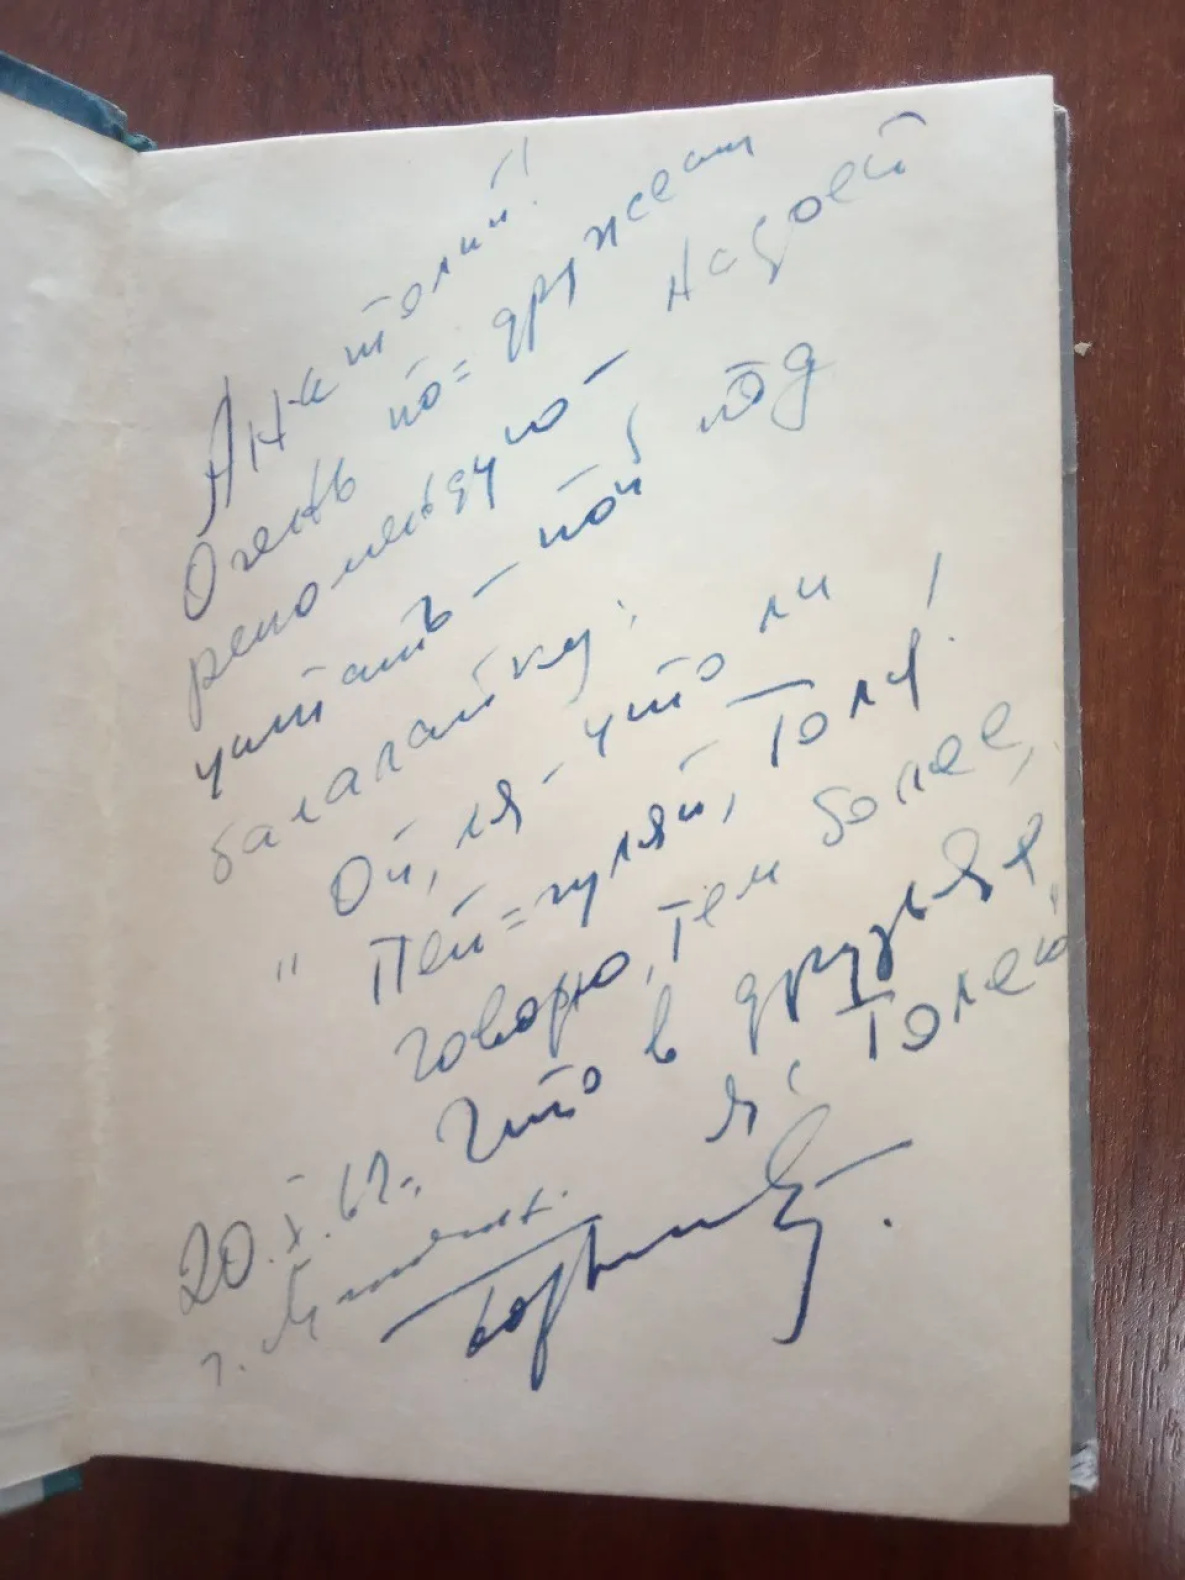 Анатолий!
Очень по-дружески
рекомендую — надоест
читать — пой под
балалайку:
Ой, ля-что ли
" Пей-гуляй, Толя!
говорю, тем более,
Что в друзьях
я с Толей
20.X.62.
г.